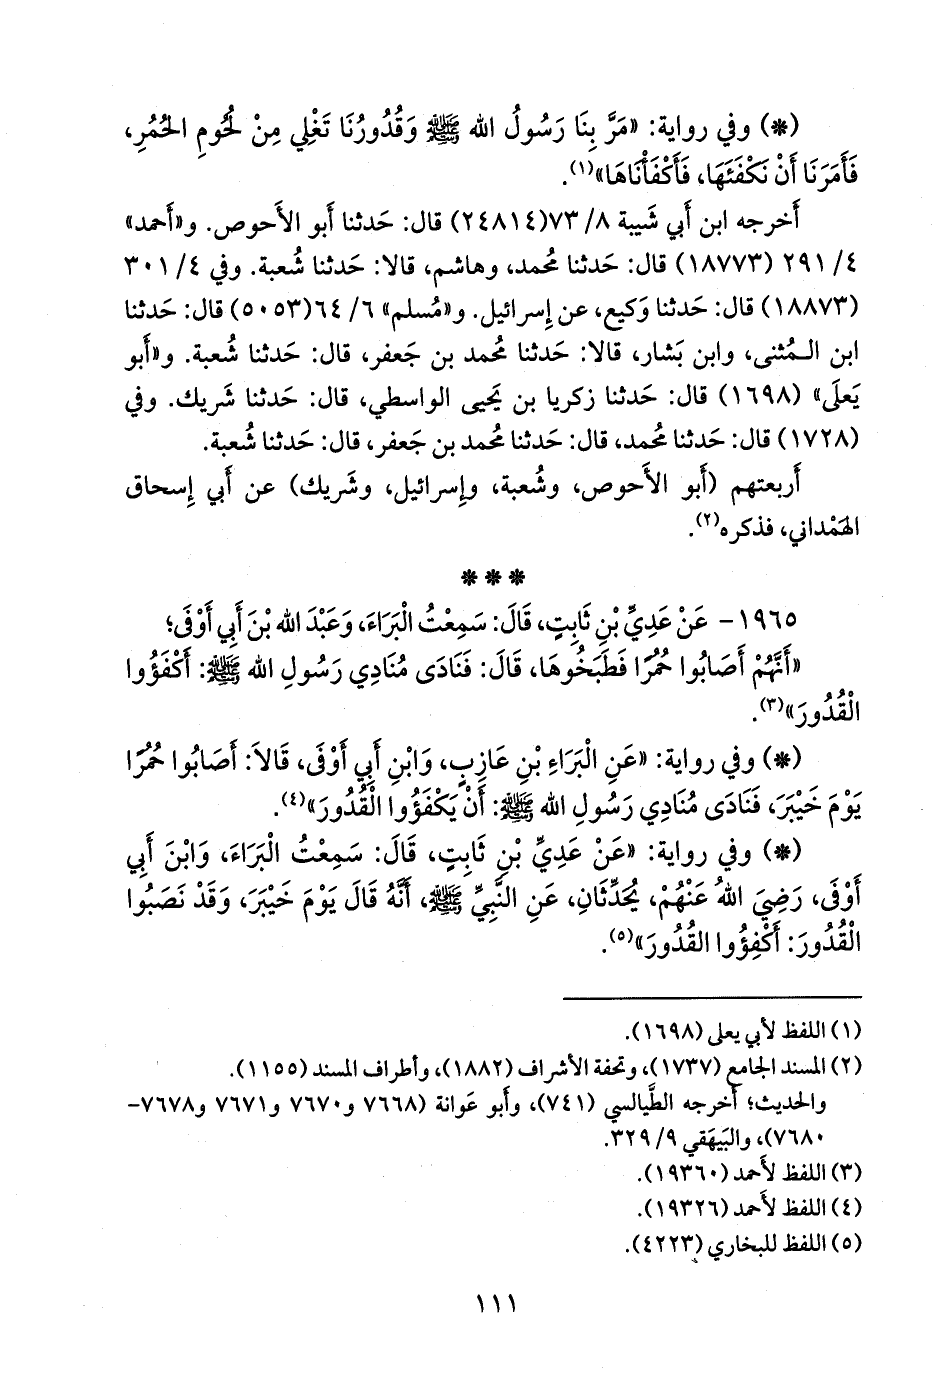 (*) وفي رواية: «مَرَّ بِنَا رَسُولُ الله ﷺ وَقُدُورُنَا تَغْلِي مِنْ لُحُومِ الحُمُرِ،
فَأَمَرَنَا أَنْ نَكْفَئَهَا، فَأَكْفَأْنَاهَا»(١).
أَخرجه ابن أبي شَيبة ٨/ ٧٣(٢٤٨١٤) قال: حَدثنا أَبو الأَحوص. و«أَحمد»
٤/ ٢٩١ (١٨٧٧٣) قال: حَدثنا مُحمد، وهاشم، قالا: حَدثنا شُعبة. وفي ٤/ ٣٠١
(١٨٨٧٣) قال: حَدثنا وَكيع، عن إِسرائيل. و«مُسلم» ٦/ ٦٤(٥٠٥٣) قال: حَدثنا
ابن المُثنى، وابن بَشار، قالا: حَدثنا مُحمد بن جَعفر، قال: حَدثنا شُعبة. و«أَبو
يَعلَى» (١٦٩٨) قال: حَدثنا زكريا بن يَحيى الواسطي، قال: حَدثنا شَريك. وفي
(١٧٢٨) قال: حَدثنا مُحمد، قال: حَدثنا مُحمد بن جَعفر، قال: حَدثنا شُعبة.
أَربعتهم (أَبو الأَحوص، وشُعبة، وإِسرائيل، وشَريك) عن أَبي إِسحاق
الهَمْداني، فذكره(٢).
* * *
١٩٦٥- عَنْ عَدِيِّ بْنِ ثَابِتٍ، قَالَ: سَمِعْتُ الْبَرَاءَ، وَعَبْدَ الله بْنَ أَبِي أَوْفَى؛
«أَنَّهُمْ أَصَابُوا حُمُرًا فَطَبَخُوهَا، قَالَ: فَنَادَى مُنَادِي رَسُولِ الله ﷺ: أَكْفَؤُوا
الْقُدُورَ»(٣).
(*) وفي رواية: «عَنِ الْبَرَاءِ بْنِ عَازِبٍ، وَابْنِ أَبِي أَوْفَى، قَالاَ: أَصَابُوا حُمُرًا
يَوْمَ خَيْبَرَ، فَنَادَى مُنَادِي رَسُولِ الله ﷺ: أَنْ يَكْفَؤُوا الْقُدُورَ»(٤).
(*) وفي رواية: «عَنْ عَدِيِّ بْنِ ثَابِتٍ، قَالَ: سَمِعْتُ الْبَرَاءَ، وَابْنَ أَبِي
أَوْفَى، رَضِيَ اللهُ عَنْهُمْ، يُحَدِّثَانِ، عَنِ النَّبِيِّ ﷺ، أَنَّهُ قَالَ يَوْمَ خَيْبَرَ، وَقَدْ نَصَبُوا
الْقُدُورَ: أَكْفِؤُوا القُدُورَ»(٥).
(١) اللفظ لأبي يعلى (١٦٩٨).
(٢) المسند الجامع (١٧٣٧)، وتحفة الأشراف (١٨٨٢)، وأطراف المسند (١١٥٥).
والحديث؛ أخرجه الطَّيالسي (٧٤١)، وأَبو عَوانة (٧٦٦٨ و٧٦٧٠ و٧٦٧١ و٧٦٧٨-
٧٦٨٠)، والبَيهَقي ٩/ ٣٢٩.
(٣) اللفظ لأَحمد (١٩٣٦٠).
(٤) اللفظ لأَحمد (١٩٣٢٦).
(٥) اللفظ للبخاري (٤٢٢٣).
١١١